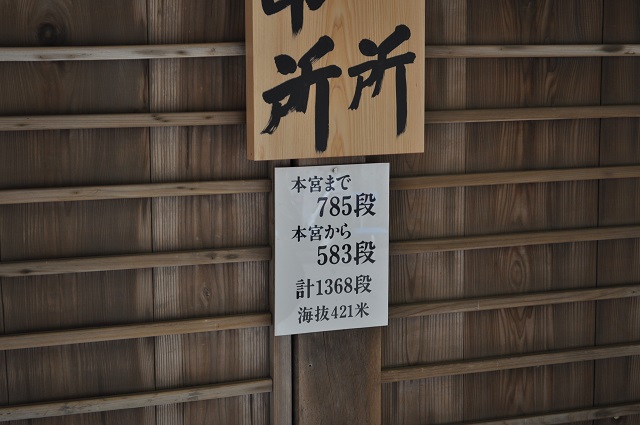 所 所
本宮まで
785段
本宮から
583段
計1368段
海抜421米